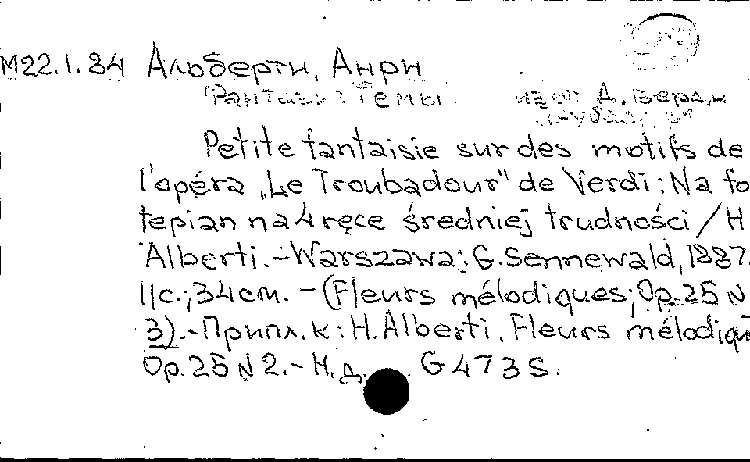 М22.1.84 Альберти, Анри
Фантазия: Темы из оп. Д. Верди
Petite fantaisie sur des motifs de
l'opéra „Le Troubadour" de Verdi: Na fo
tepian na 4 ręce średniej trudności / H
Alberti. - Warszawa: G. Sennewald, 1887.
11с.; 34см. - (Fleurs mélodiques; Op. 25 N
3). - Припл. к: H. Alberti. Fleurs mélodiqu
Op. 25 N 2. - Н. д. G 473 S.